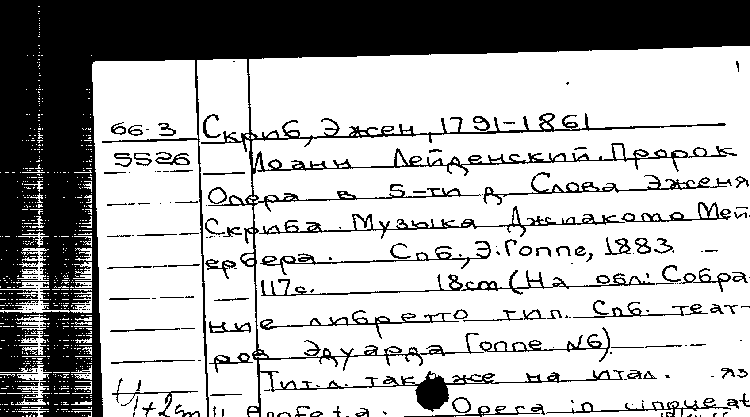 66.3 Скриб, Эжен, 1791-1861
5526 Иоанн Лейденский. Пророк
Опера в 5-ти д. Слова Эженя
Скриба. Музыка Джиакомо Мей-
ербера. Спб., Э. Гоппе, 1883
117с. 18cm (На обл: Собра-
ние либретто тип. Спб. теат-
ров Эдуарда Гоппе №6)
Тит. л. также на итал. яз
Opera in cinque at